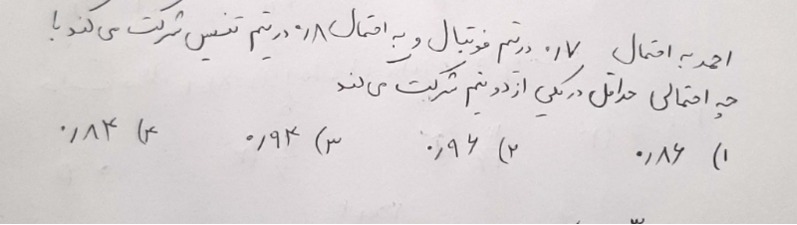 احمد به احتمال ۰/۷ در تیم فوتبال و به احتمال ۰/۸ در تیم تنیس شرکت می کند با
چه احتمالی حداقل در یکی از دو تیم شرکت می کند
۱) ۰/۸۶ ۲) ۰/۹۶ ۳) ۰/۹۴ ۴) ۰/۸۴